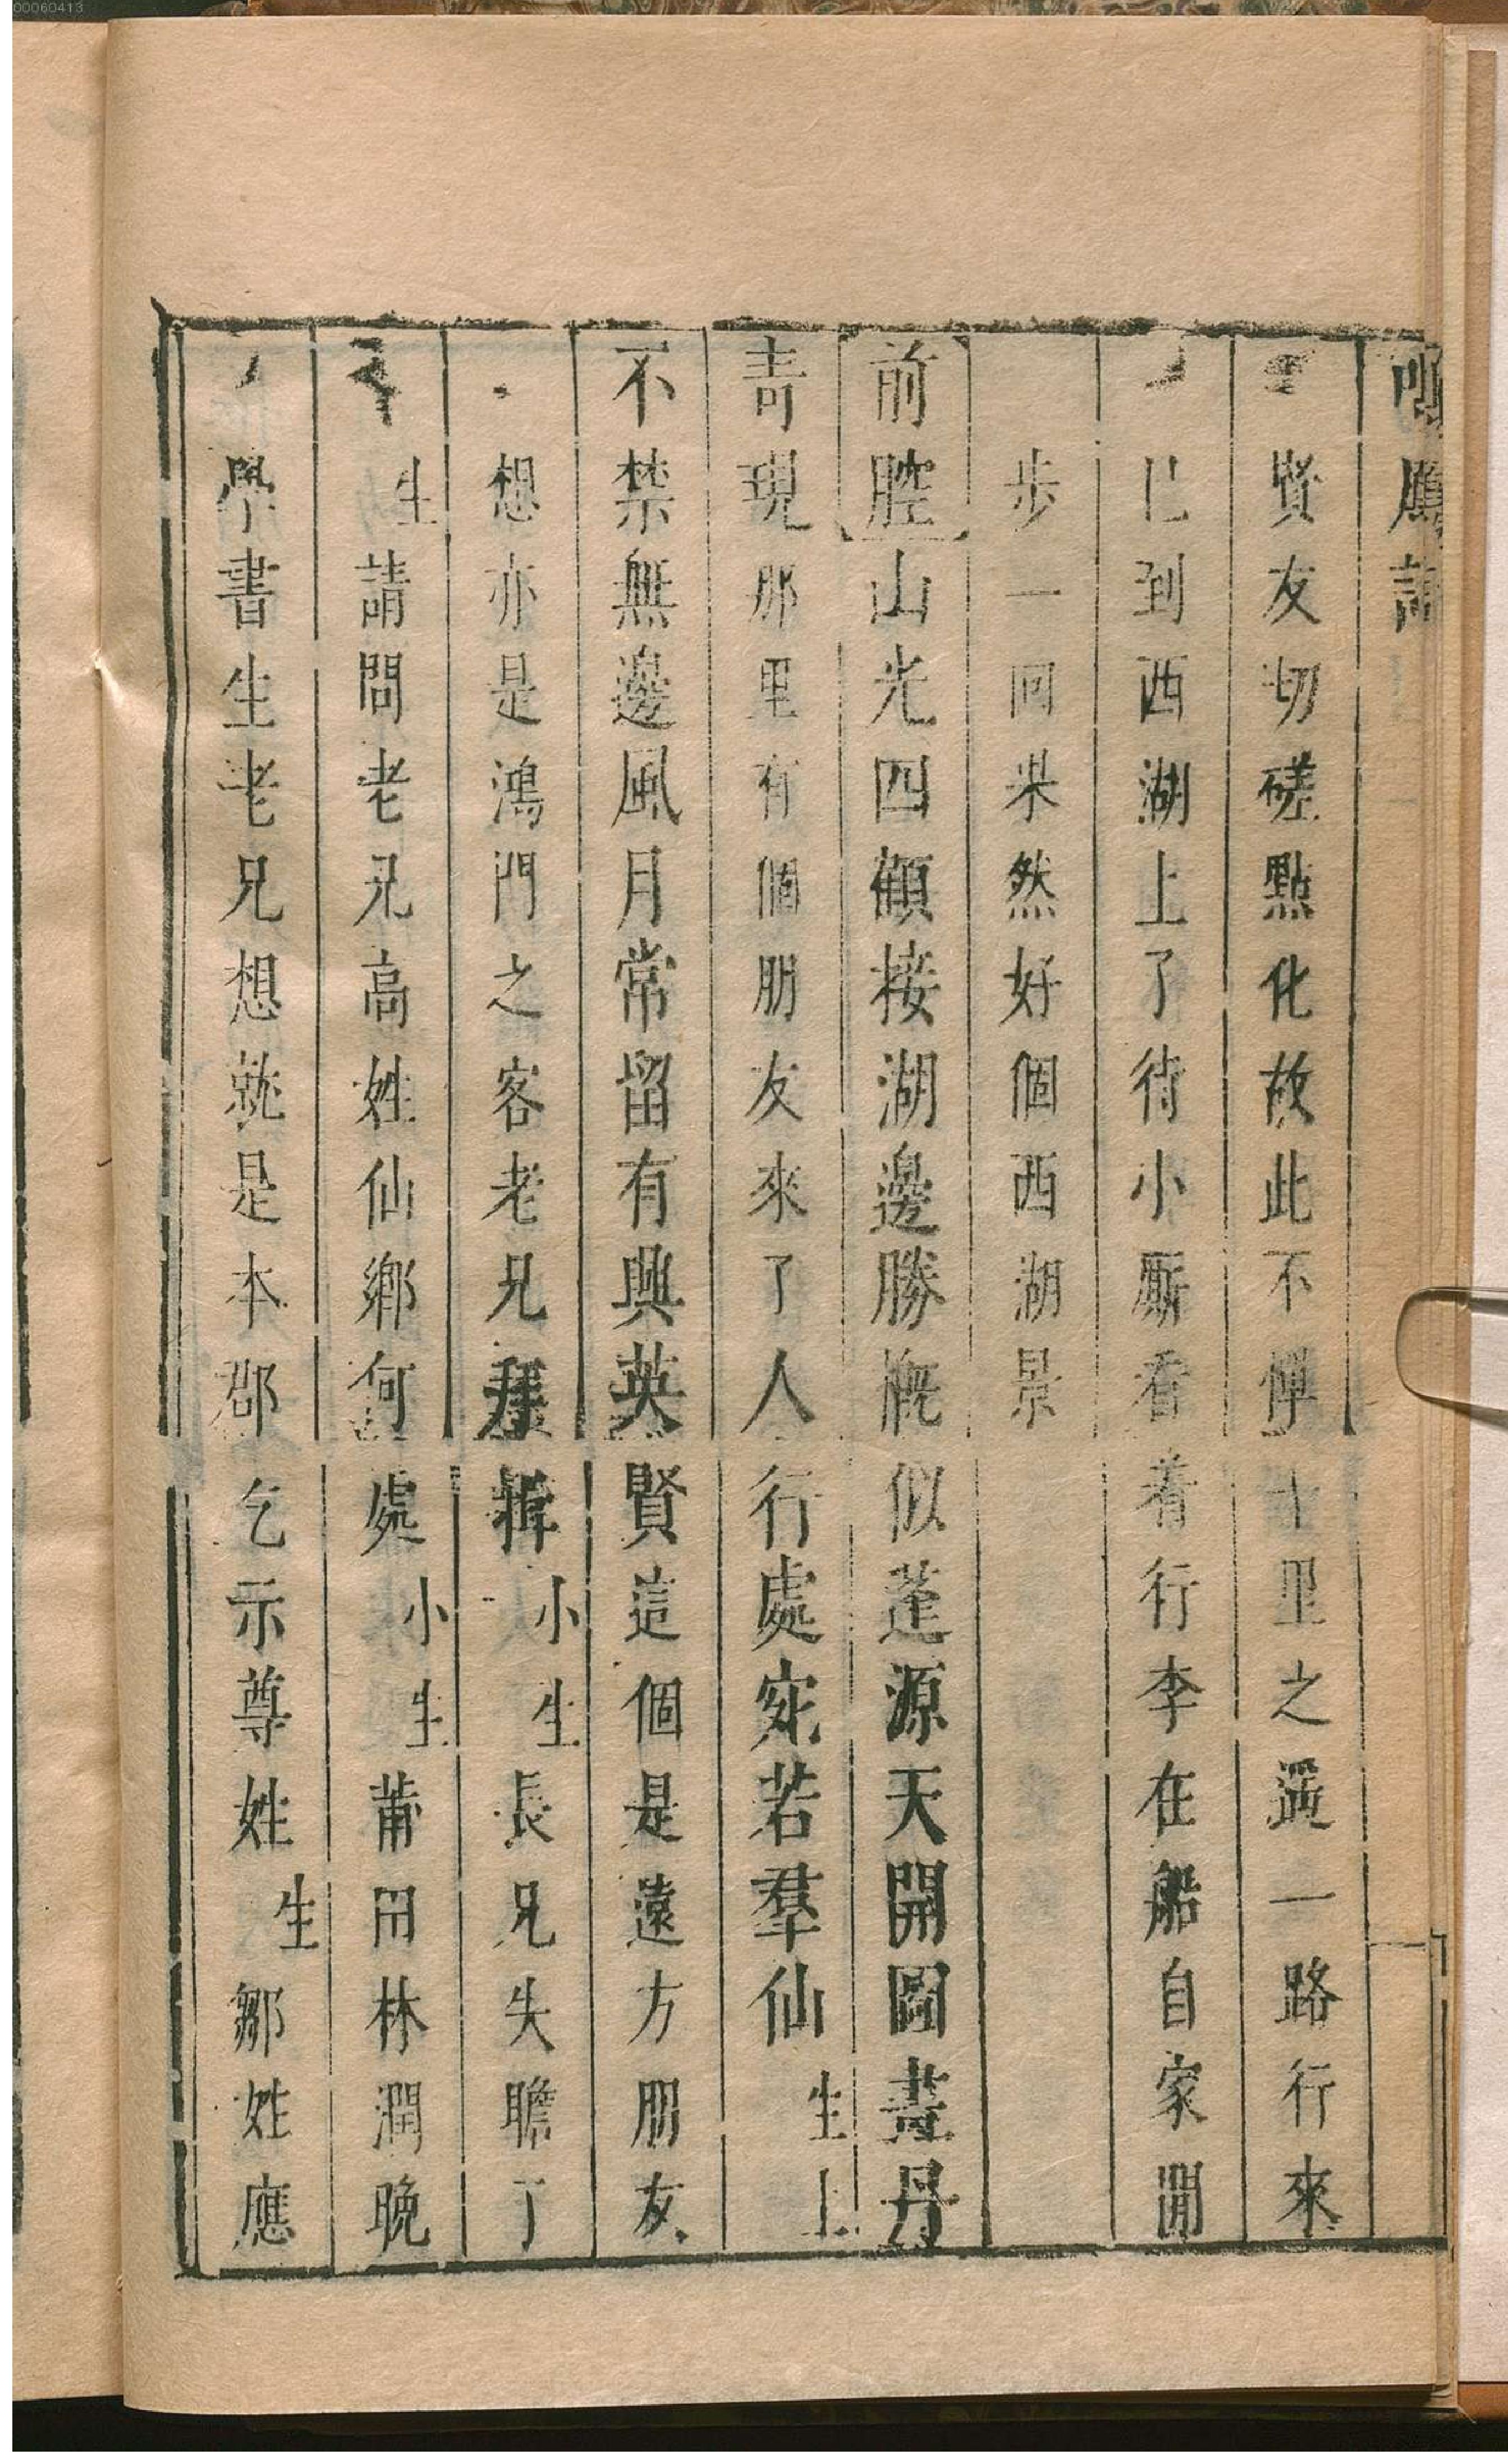 00060413
鳴鳳記
賢友切磋點化故此不憚千里之遥一路行來
已到西湖上了待小厮看着行李在船自家閒
步一回果然好個西湖景
前腔山光四顧接湖邊勝槩似蓬源天開圖畫丹
青現那里有個朋友來了人行處宛若羣仙生上
不禁無邊風月常留有興英賢這個是遠方朋友
想亦是鴻門之客老兄拜揖小生長兄失瞻了
生請問老兄高姓仙鄉何處小生莆田林潤晚
學書生老兄想就是本郡乞示尊姓生鄒姓應